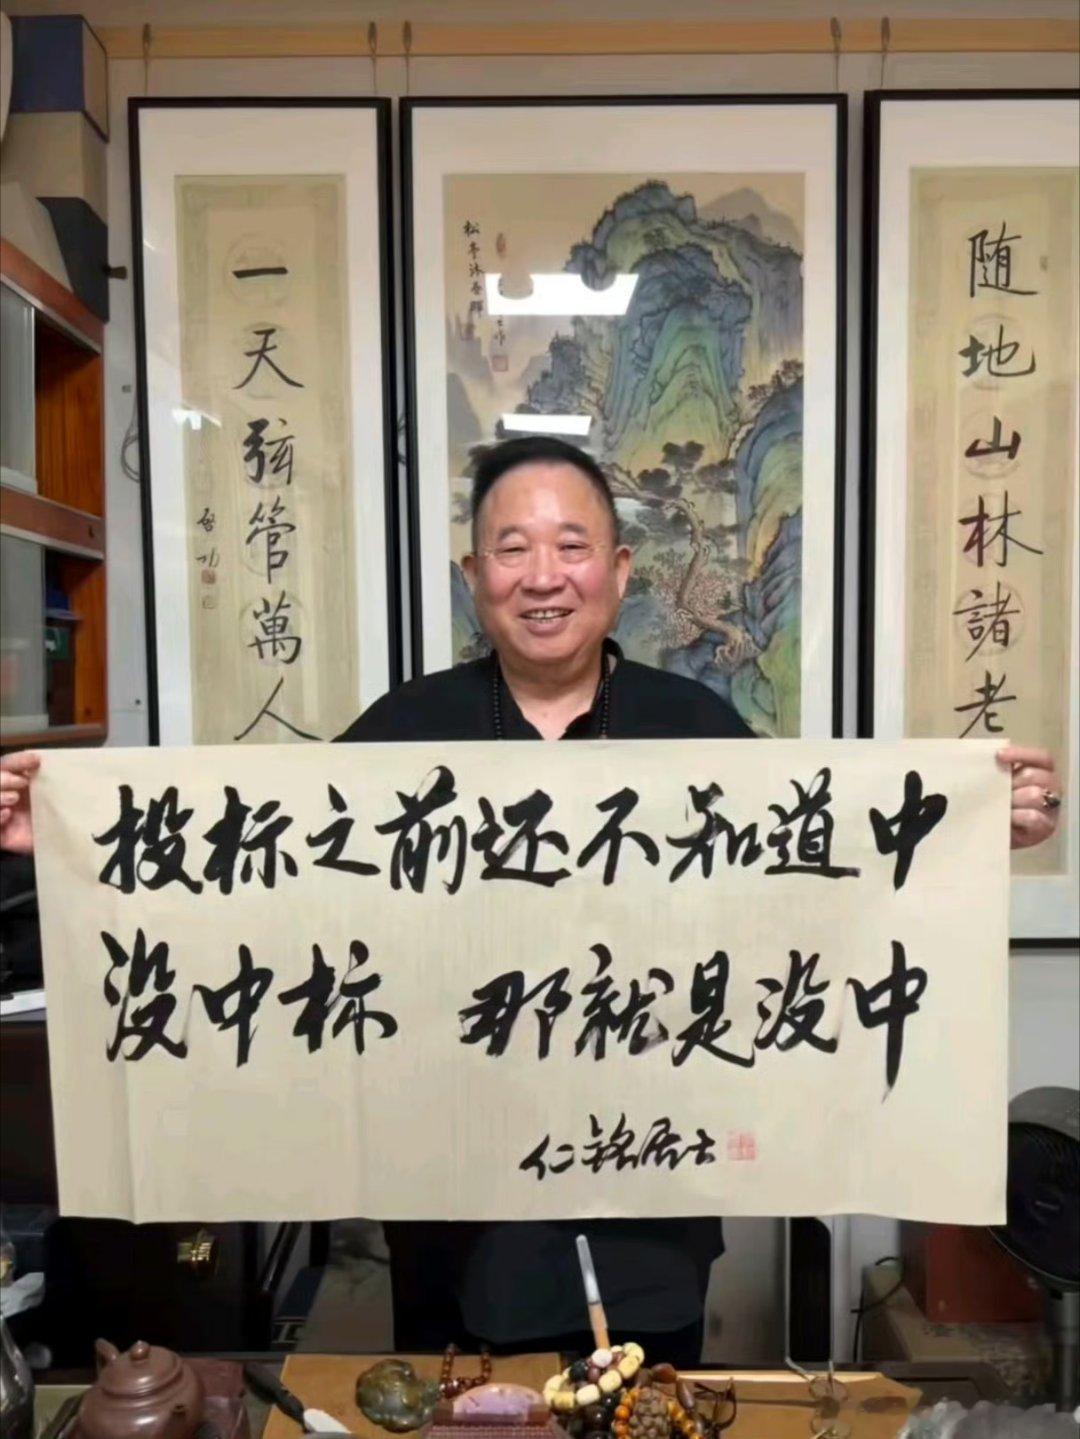 随地山林諸老
松亭沐春暉
一天弦管萬人
啓功
投标之前还不知道中
没中标 那就是没中
仁铭居士